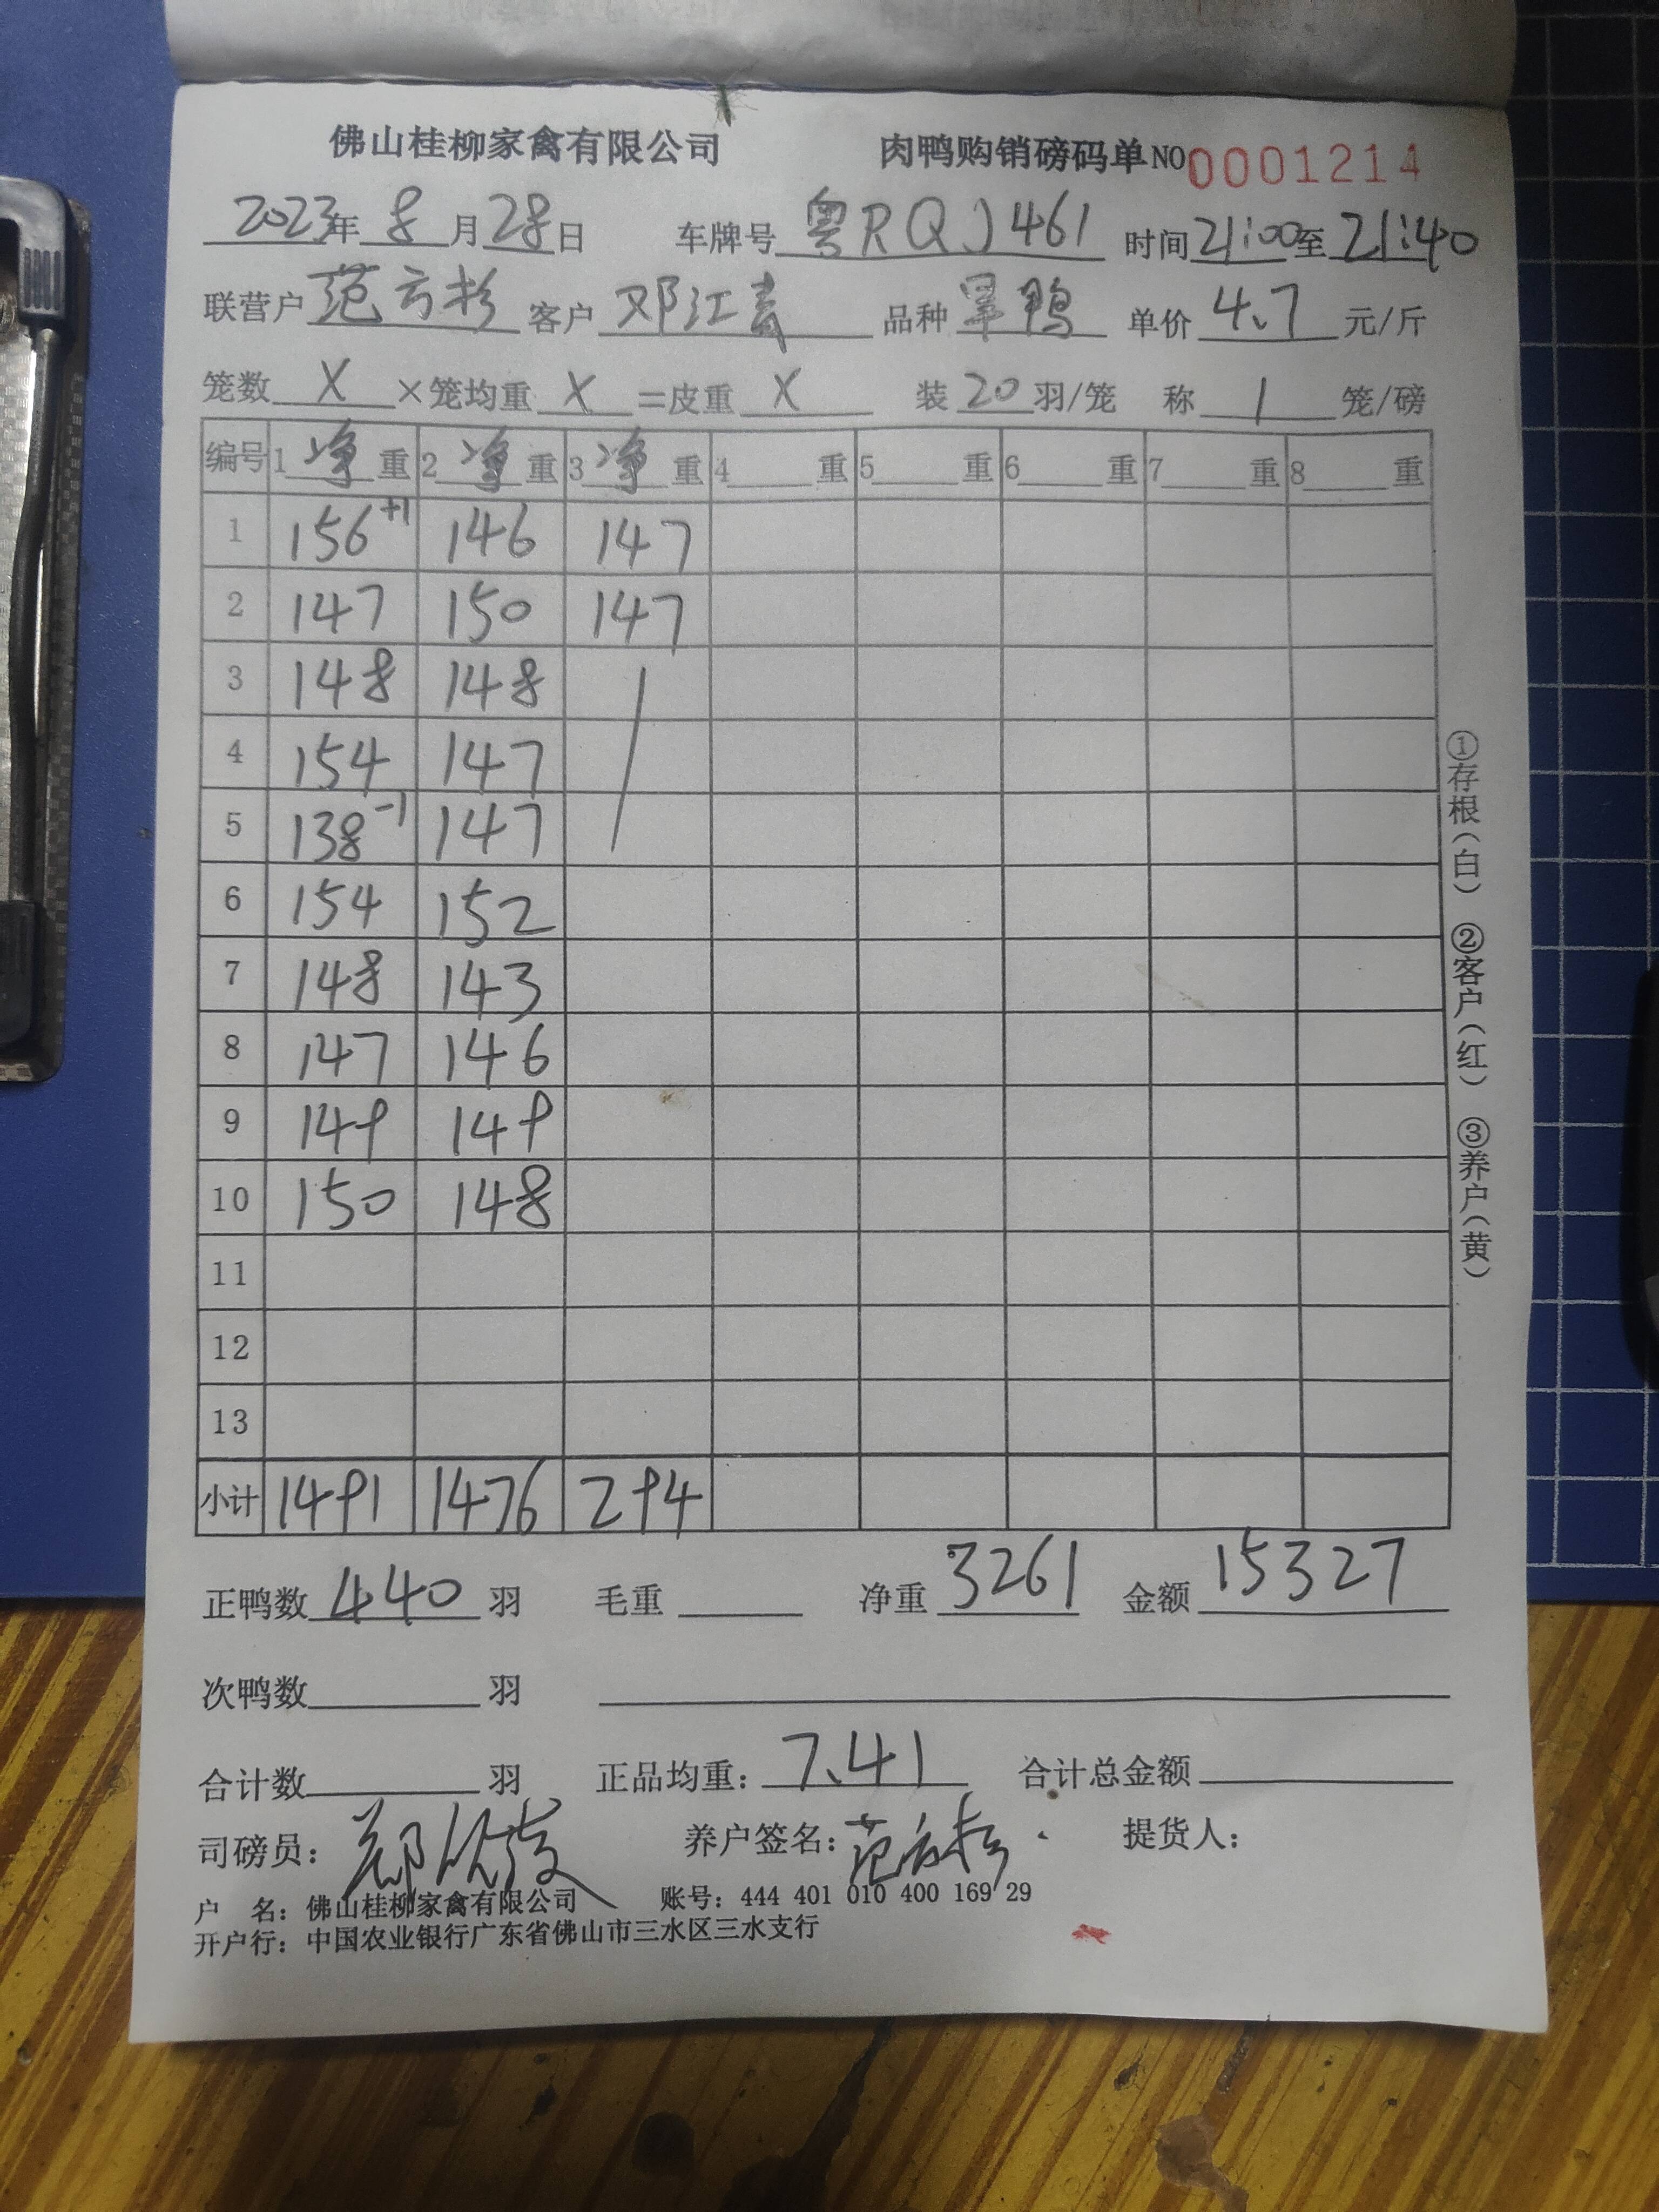 佛山桂柳家禽有限公司 肉鸭购销磅码单 NO 0001214
2023年 8 月 28 日 车牌号 粤RQJ461 时间 21:00 至 21:40
联营户 范方杉 客户 邓江青 品种 旱鸭 单价 4.7 元/斤
笼数 X ×笼均重 X =皮重 X 装 20 羽/笼 称 1 笼/磅
编号 1 净 重 2 净 重 3 净 重 4 重 5 重 6 重 7 重 8 重
1 156+1 146 147
2 147 150 147
3 148 148
4 154 147
5 138-1 147
6 154 152
7 148 143
8 147 146
9 149 149
10 150 148
11
12
13
小计 1491 1476 294
正鸭数 440 羽 毛重 净重 3261 金额 15327
次鸭数 羽
合计数 羽 正品均重: 7.41 合计总金额
司磅员: 养户签名: 范方杉 提货人:
户 名: 佛山桂柳家禽有限公司 账号: 444 401 010 400 169 29
开户行: 中国农业银行广东省佛山市三水区三水支行
①存根(白) ②客户(红) ③养户(黄)